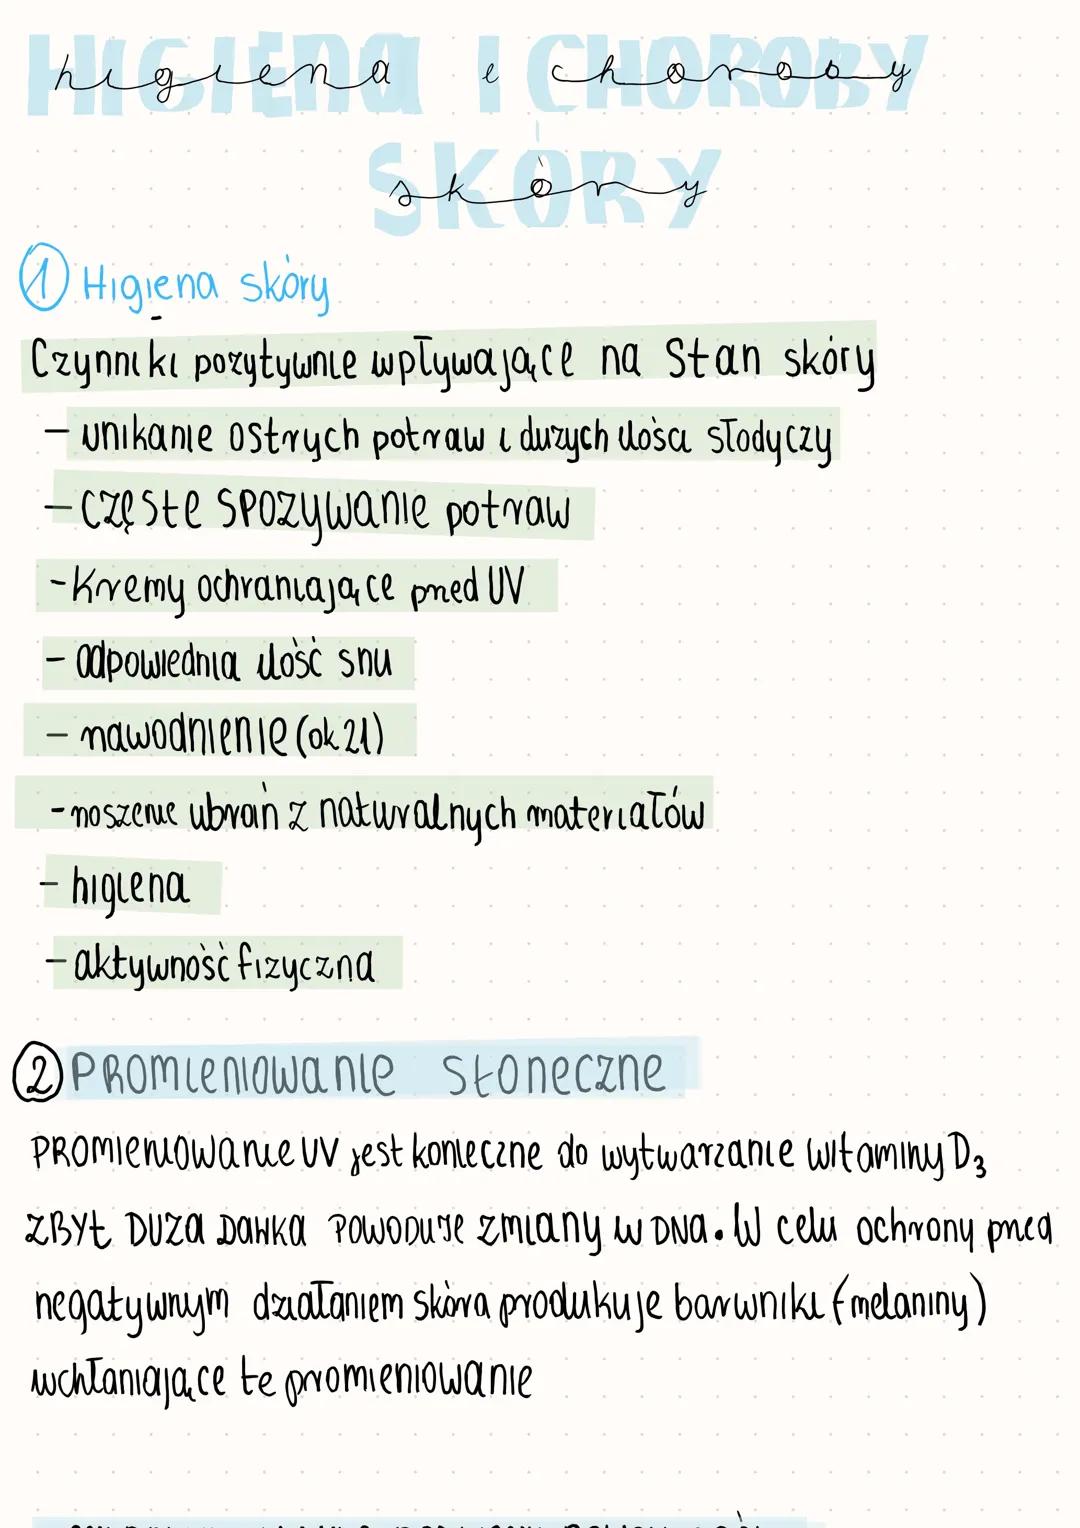 HIGIENA I CHOROBY
higiena i choroby
SKÓRY
skóry
① Higiena skóry
Czynniki pozytywnie wpływające na stan skóry
- unikanie ostrych potraw i dużych ilości słodyczy
- częste spozywanie potraw
- Kremy ochraniające pred UV
- odpowiednia ilość snu
- nawodnienie (ok 2l)
- noszenie ubrań z naturalnych materiałów
- higiena
- aktywność fizyczna
② PROMIENIOWANIE Słoneczne
PROMIENIOWANIE UV jest konieczne do wytwarzanie witaminy D3
ZBYt DUZA DAWKA POWODUJE zmiany w DNA. W celu ochrony pred
negatywnym działaniem skóra produkuje barwniki (melaniny)
wchłaniające te promieniowanie